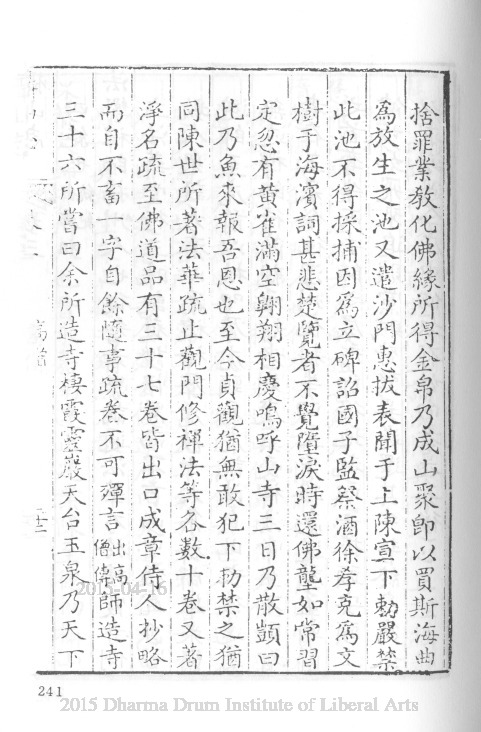 捨罪業教化佛緣所得金帛乃成山聚即以買斯海曲
為放生之池又遣沙門惠拔表聞于上陳宣下勅嚴禁
此池不得採捕因為立碑詔國子監祭酒徐孝克為文
樹于海濱詞甚悲楚覽者不覺墮淚時還佛壟如常習
定忽有黃雀滿空翺翔相慶鳴呼山寺三日乃散顗曰
此乃魚來報吾恩也至今貞觀猶無敢犯下勅禁之猶
同陳世所著法華疏止觀門修禪法等各數十卷又著
淨名疏至佛道品有三十七卷皆出口成章侍人抄略
而自不畜一字自餘隨事疏卷不可殫言出高僧傳師造寺
三十六所嘗曰余所造寺棲霞靈巖天台玉泉乃天下
241
2015-04-16
2015 Dharma Drum Institute of Liberal Arts